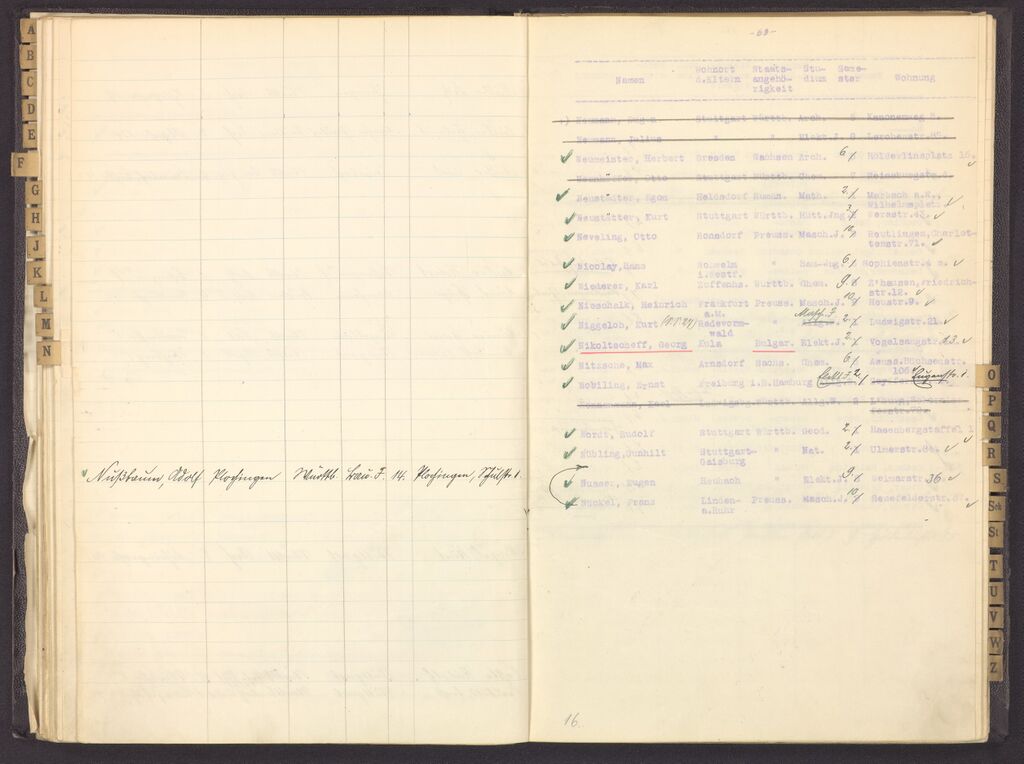 A
B
C
D
E
F
G
H
J
K
L
M
N
Nußbaum, Adolf Plochingen Württb. Bau-J. 14. Plochingen, Schulstr. 1.
Namen Wohnort d.Eltern Staats-angehö-rigkeit Stu-dium Seme-ster Wohnung
Stuttgart Württb. Arch. Kanonenweg 8.
Neumann, Julius " " Elekt.J. 8 Lerchenstr.
Neumeister, Herbert Dresden Sachsen Arch. 6 Hölderlinplatz
Otto Stuttgart Württb. Chem.
Neustädter, Egon Heldsdorf Rumän. Math. 2. Marbach a.N.,
Wilhelmsplatz
Neustätter, Kurt Stuttgart Württb. Hütt.Jng. 3. Werastr.43.
Neveling, Otto Honsdorf Preuss. Masch.J. 10. Reutlingen, Charlot-
tenstr.71.
Nicolay, Hans " Bau-Jng. 6 Sophienstr.
i.Westf.
Niederer, Karl Zuffenhs. Württb. Chem. 9. Z'hausen, Friedrich-
str.12.
Nieschalk, Heinrich Frankfurt Preuss. Masch.J. 10. Heustr.9.
a.M.
Niggeloh, Kurt Radevorm- " Masch. J. 2. Ludwigstr.
wald
Nikoltscheff, Georg Kula Bulgar. Elekt.J. 2. Vogelsangstr.
Nitzsche, Max Arnsdorf Sachs. Chem. 6
106
Nobiling, Ernst Freiburg i.B. Hamburg Elekt. J. 2. Eugenstr. 1.
Württb. Allg.W.
Nordt, Rudolf Stuttgart Württb. Geod. 2. Hasenbergstaffel 1
Nübling, Gunhilt Stuttgart- " Nat. 2. Ulmerstr.
Gaisburg
Nusser, Eugen Heubach " Elekt.J. 9. Weimarstr. 36.
Nückel, Franz Linden- Preuss. Masch.J. 10 Senefelderstr.
a.Ruhr
16.
O
P
Q
R
S
Sch
St
T
U
V
W
Z